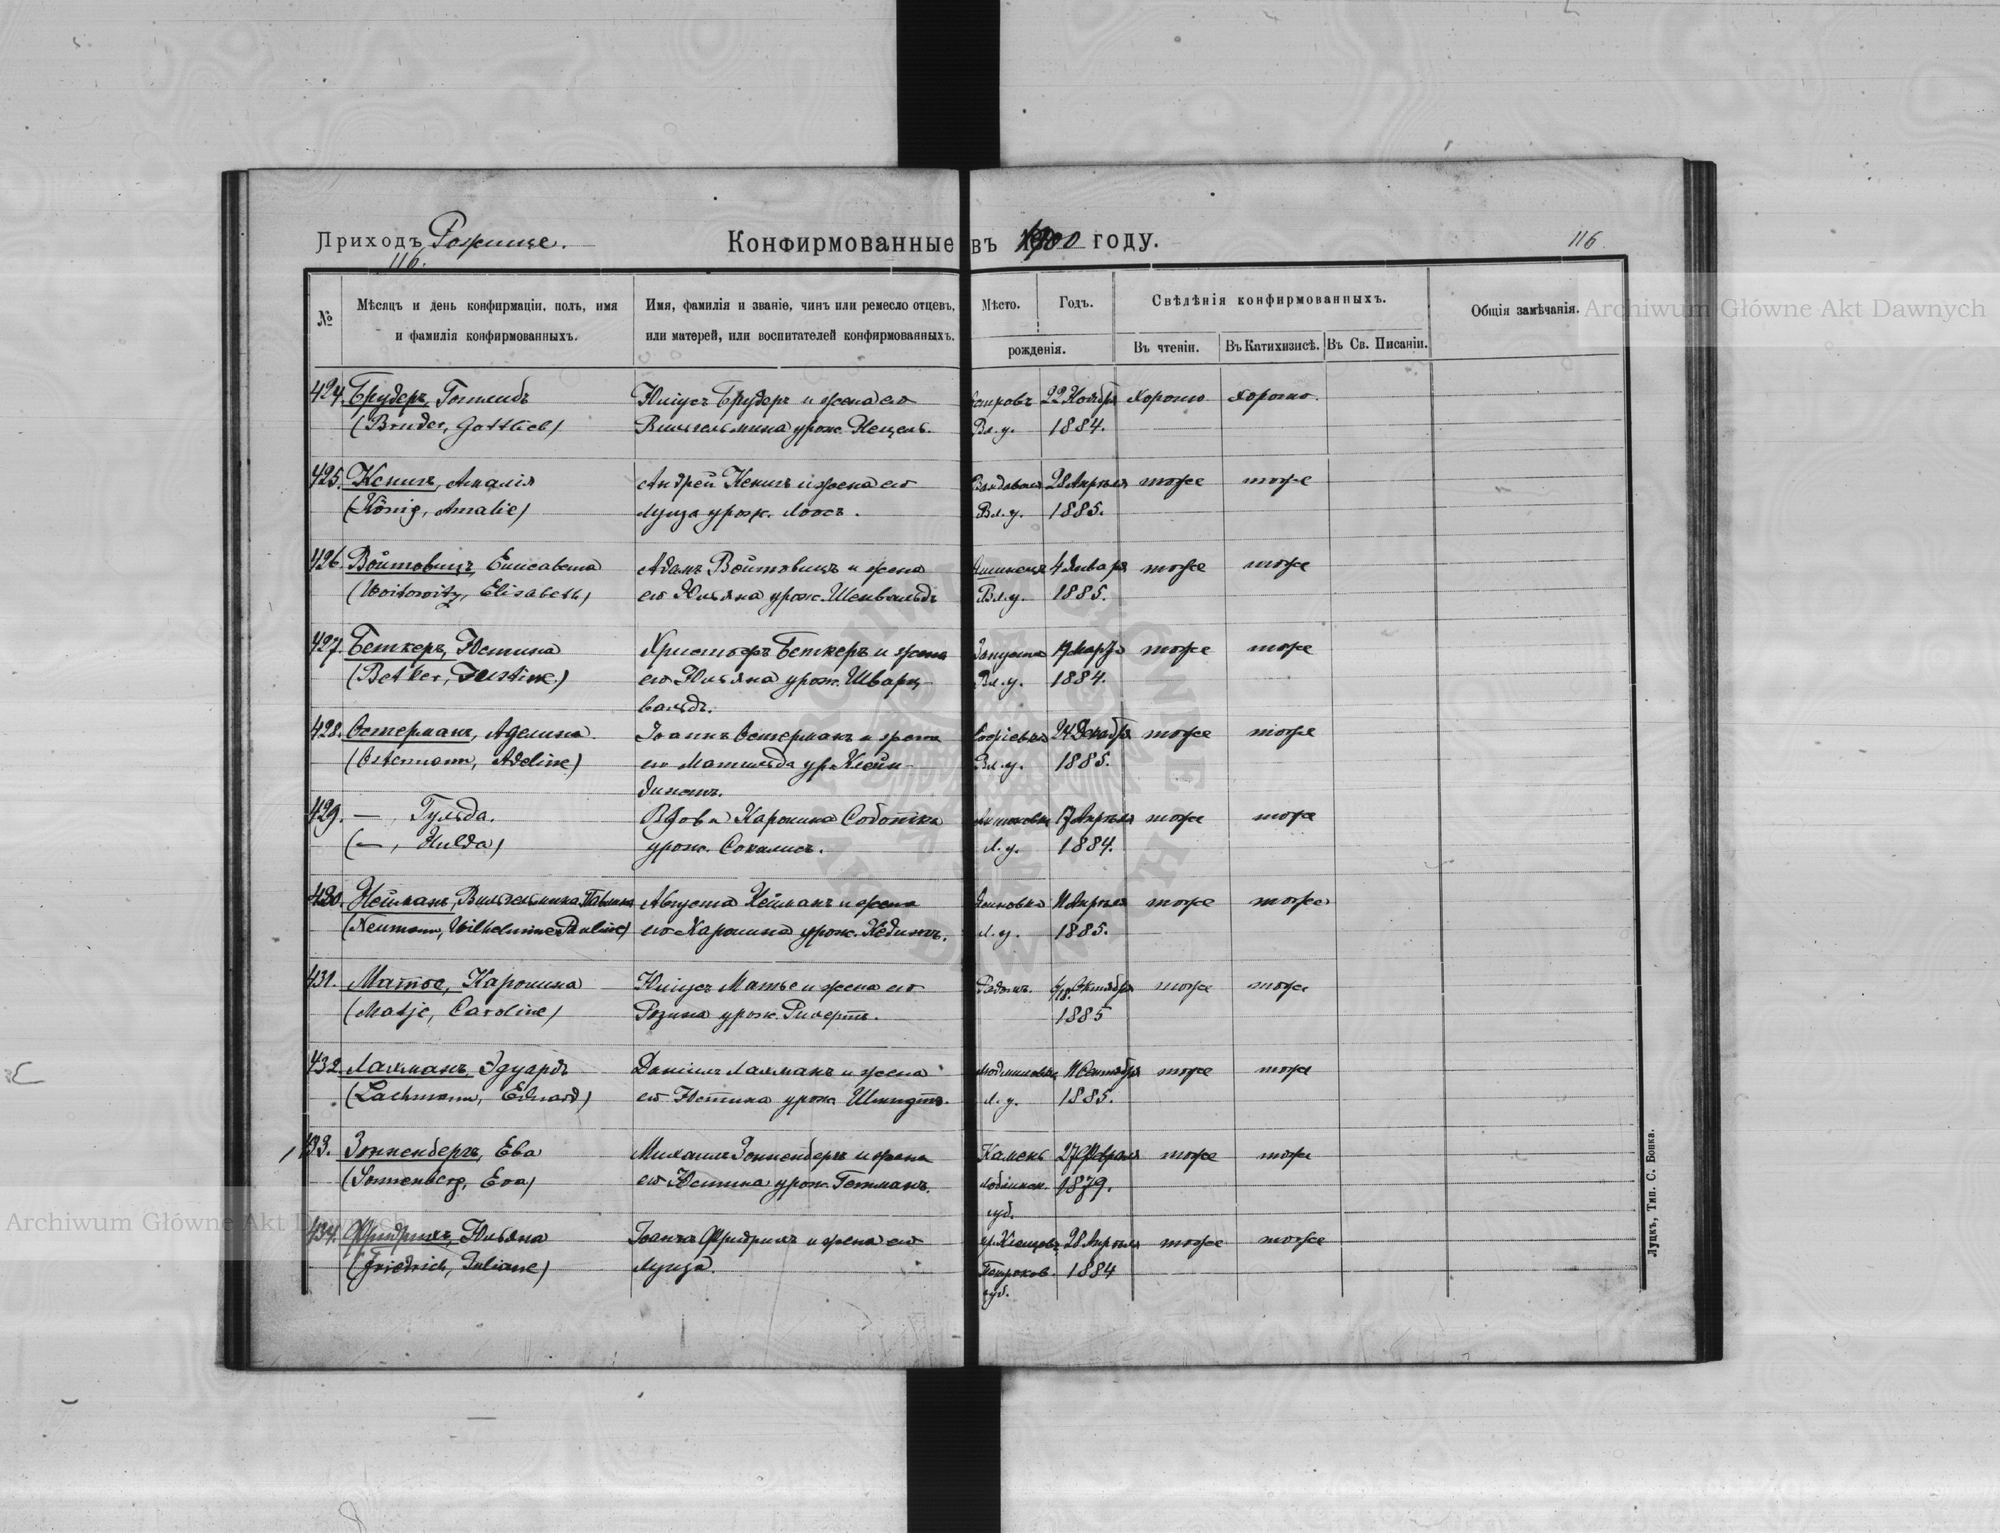 Приходъ Рожище.
116.
Конфирмованные въ 1900 году.
116
№
Мѣсяцъ и день конфирмаціи, полъ, имя
и фамилія конфирмованныхъ.
Имя, фамилія и званіе, чинъ или ремесло отцевъ,
или матерей, или воспитателей конфирмованныхъ.
Мѣсто.
Годъ.
рожденія.
Свѣдѣнія конфирмованныхъ.
Въ чтеніи.
Въ Катихизисѣ.
Въ Св. Писаніи.
Общія замѣчанія.
424. Брудеръ, Готлибъ Юліусъ Брудеръ и жена его 22 Ноября хорошо хорошо.
(Bruder, Gottlieb) Вильгельмина урож. Вл. у. 1884.
425. Кенигъ, Амалія Андрей Кенигъ и жена его 28 Апрѣля тоже тоже
(König, Amalie) Луиза урож. Лоосъ. Вл. у. 1885.
426. Войтовицъ, Елисавета Адамъ Войтовицъ и жена 4 Января тоже тоже
(Woitowitz, Elisabeth) его Юльяна урож. Шенвальдъ Вл. у. 1885.
427. Беткеръ, Юстина Христофъ Беткеръ и жена Запуста Марта тоже тоже
(Betker, Justine.) его Юльяна урож. Шварц- Вл. у. 1884.
вальдъ.
428. Остерманъ, Аделина Іоаннъ Остерманъ и жена Софіевка 24 Декабря тоже тоже
(Ostermann, Adeline) его Матильда ур. Клейн- Вл. у. 1885.
динстъ.
429. —, Гульда. Вдова Каролина Соботка 17 Апрѣля тоже тоже
(—, Hulda) урож. Л. у. 1884.
430. Нейманъ, Вильгельмина Павлина Августа Нейманъ и жена 11 Апрѣля тоже тоже
(Neumann, Wilhelmine Pauline) его Каролина урож. Л. у. 1885.
431. Матье, Каролина Юліусъ Матье и жена его Радомъ. 6/18. Октября тоже тоже
(Matje, Caroline) Розина урож. 1885
432. Лахманъ, Эдуардъ Даніилъ Лахманъ и жена Людмиловка 11 Сентября тоже тоже
(Lachmann, Eduard) его Юстина урож. Шмидтъ. Л. у. 1885.
433. Зонненбергъ, Ева Михаилъ Зонненбергъ и жена Камень 27 Февраля тоже тоже
(Sonnenberg, Eva) его Юстина урож. Гетманъ. Люблинск. 1879.
губ.
434. Фридрихъ, Юльяна Іоаннъ Фридрихъ и жена его 28 Апрѣля тоже тоже
(Friedrich, Juliane) Луиза. Петроков. 1884
губ.
Луцкъ, Тип. С. Бонка.
Archiwum Główne Akt Dawnych
Archiwum Główne Akt Dawnych
ARCHIWUM GŁÓWNE AKT DAWNYCH